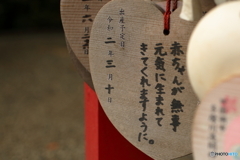 赤ちゃんが無事
元気に生まれて
きてくれますように。
出産予定は
令和二年三月十